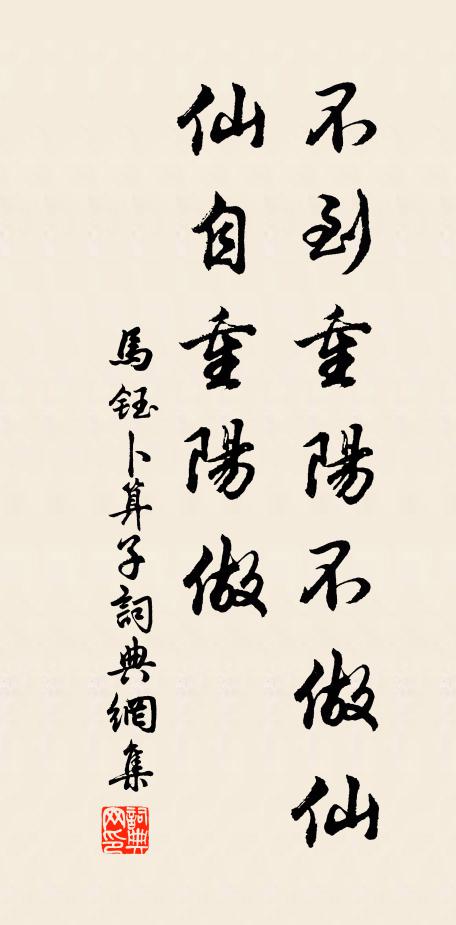 不到重陽不做仙
仙自重陽做
馬鈺卜算子詞典網集
詞典网印